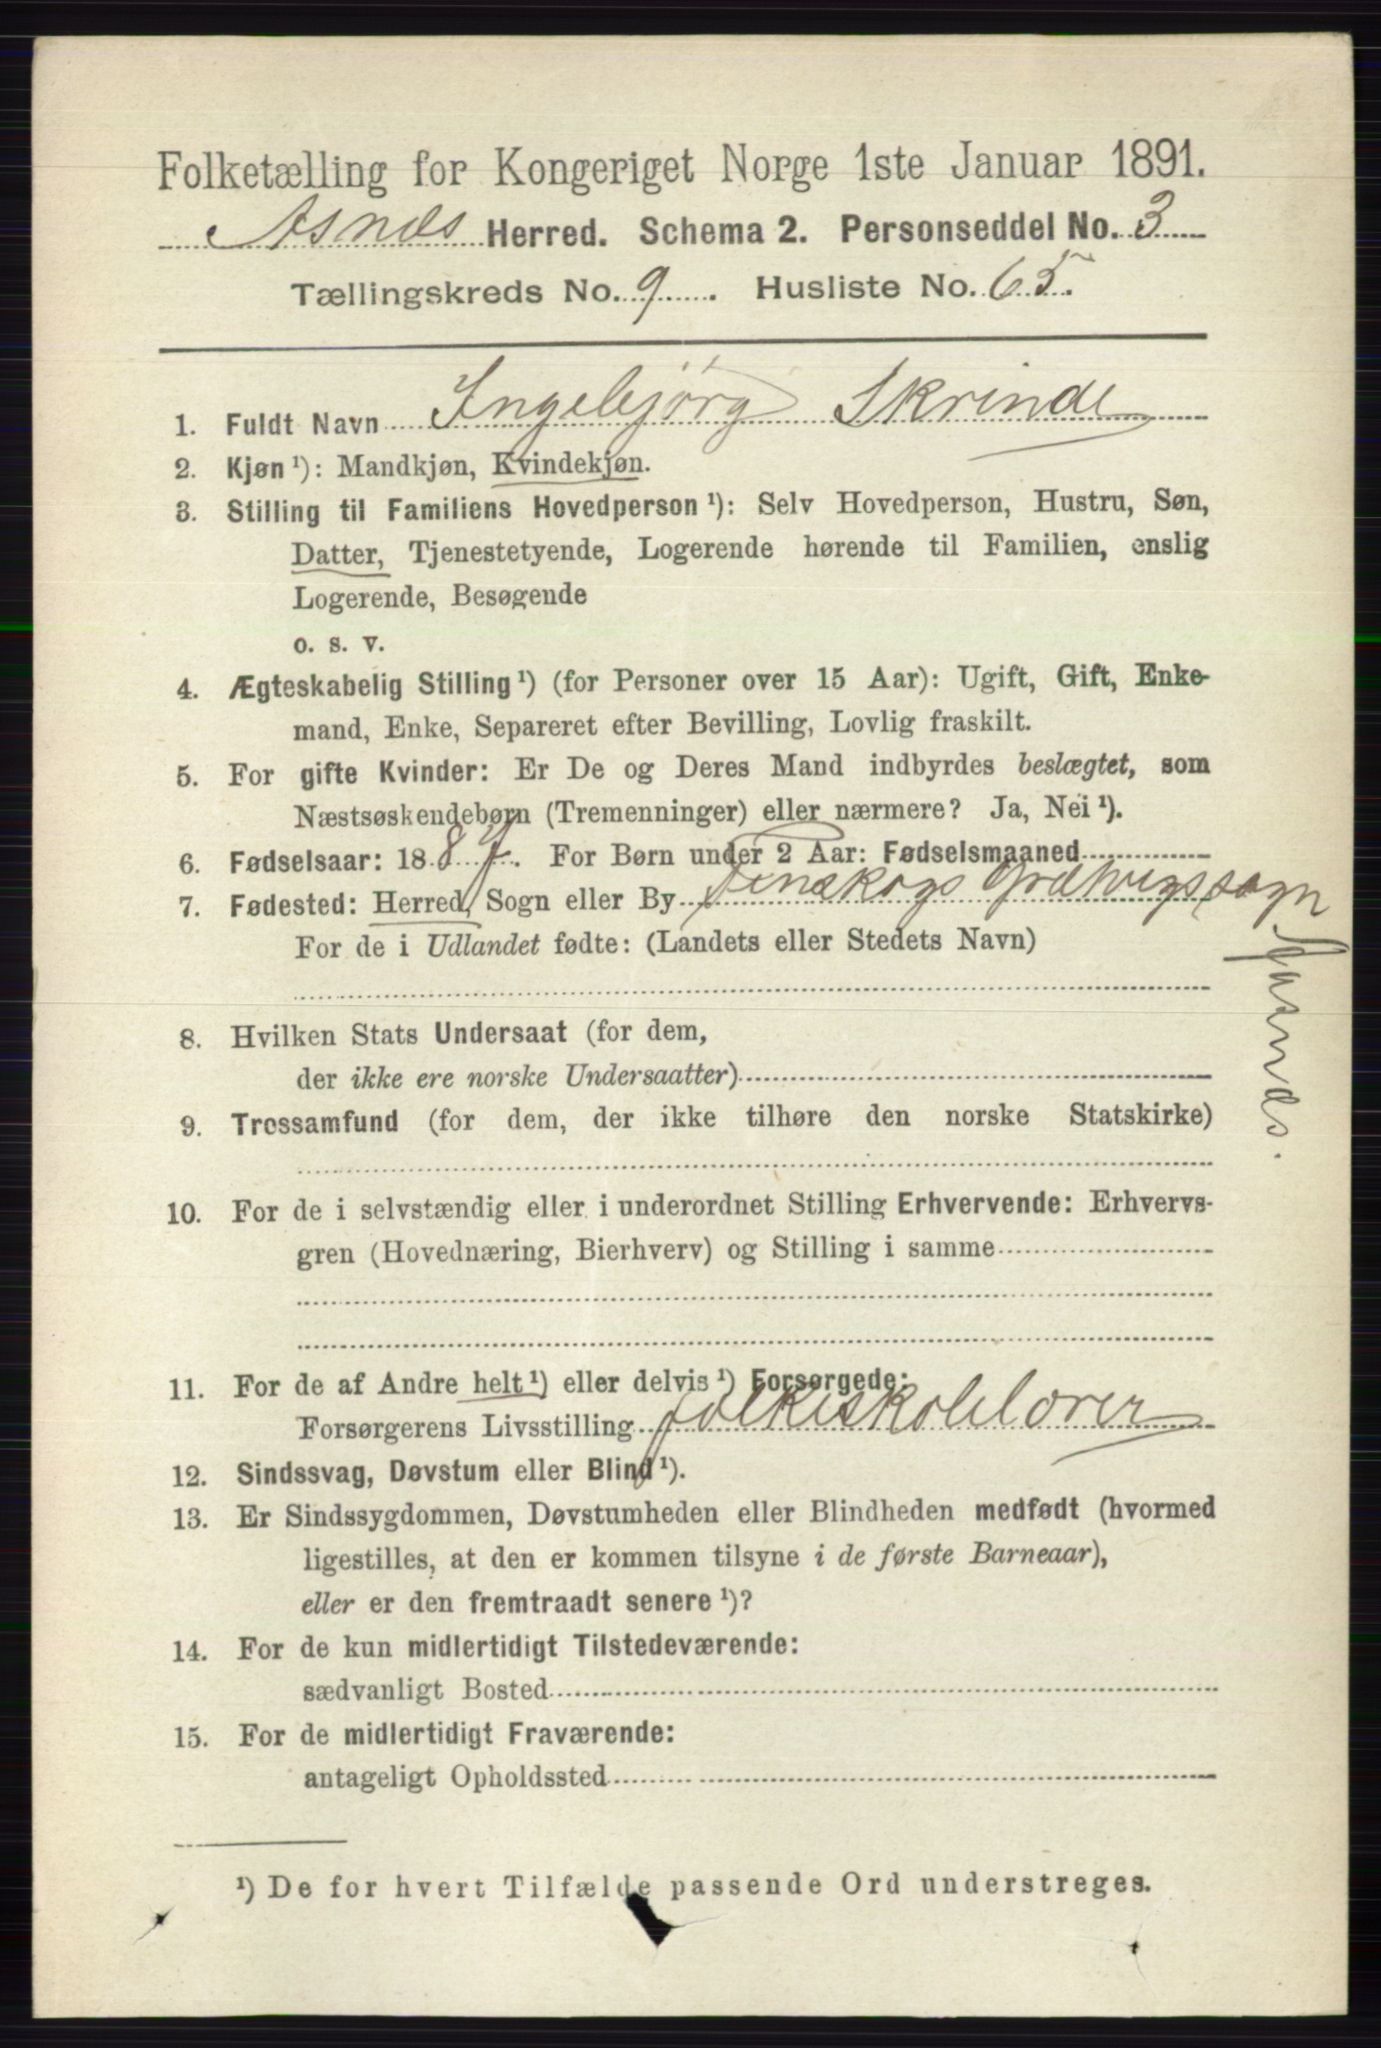 Folketælling for Kongeriget Norge 1ste Januar 1891.
Asnæs Herred. Schema 2. Personseddel No. 3
Tællingskreds No. 9. Husliste No. 65.
1. Fuldt Navn Ingebjørg Skrinde
2. Kjøn ¹): Mandkjøn, Kvindekjøn.
3. Stilling til Familiens Hovedperson ¹): Selv Hovedperson, Hustru, Søn,
Datter, Tjenestetyende, Logerende hørende til Familien, enslig
Logerende, Besøgende
o. s. v.
4. Ægteskabelig Stilling ¹) (for Personer over 15 Aar): Ugift, Gift, Enke-
mand, Enke, Separeret efter Bevilling, Lovlig fraskilt.
5. For gifte Kvinder: Er De og Deres Mand indbyrdes beslægtet, som
Næstsøskendebørn (Tremenninger) eller nærmere? Ja, Nei ¹).
6. Fødselsaar: 1887. For Børn under 2 Aar: Fødselsmaaned
7. Fødested: Herred, Sogn eller By Finskogs Gravbergs sogn
Aasnæs.
For de i Udlandet fødte: (Landets eller Stedets Navn)
8. Hvilken Stats Undersaat (for dem,
der ikke ere norske Undersaatter)
9. Trossamfund (for dem, der ikke tilhøre den norske Statskirke)
10. For de i selvstændig eller i underordnet Stilling Erhvervende: Erhvervs-
gren (Hovednæring, Bierhverv) og Stilling i samme
11. For de af Andre helt ¹) eller delvis ¹) Forsørgede:
Forsørgerens Livsstilling folkeskolelærer
12. Sindssvag, Døvstum eller Blind ¹).
13. Er Sindssygdommen, Døvstumheden eller Blindheden medfødt (hvormed
ligestilles, at den er kommen tilsyne i de første Barneaar),
eller er den fremtraadt senere ¹)?
14. For de kun midlertidigt Tilstedeværende:
sædvanligt Bosted
15. For de midlertidigt Fraværende:
antageligt Opholdssted
¹) De for hvert Tilfælde passende Ord understreges.